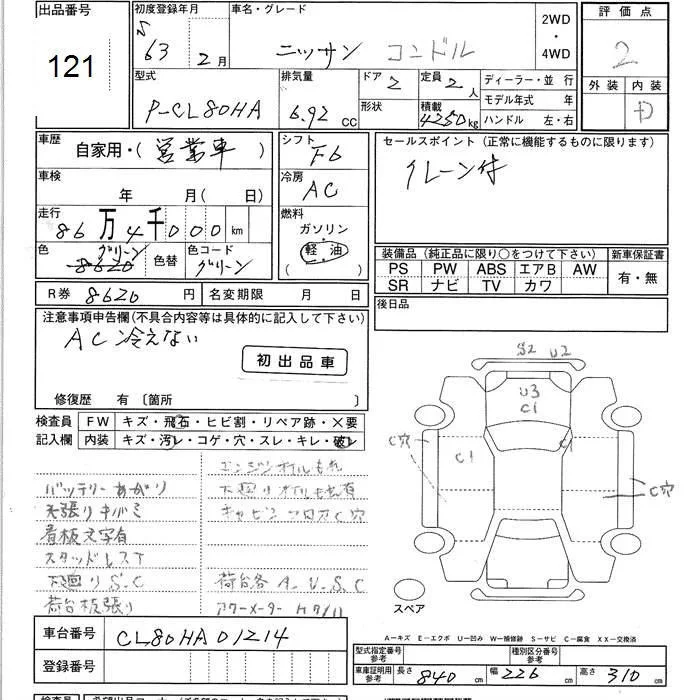 出品番号
121
初度登録年月
S 63年 2月
車名・グレード
ニッサン コンドル
2WD
・
4WD
評価点
2
型式
P-CL80HA
排気量
6.92 CC
ドア 2
形状
定員 2人
積載 4250kg
ディーラー・並 行
モデル年式 年
ハンドル 左・右
外装 内装
D
車歴
自家用・(営業車)
車検
年 月(日)
走行
86万4千000km
色 グリーン
8620
色替
色コード
グリーン
シフト
F6
冷房
AC
燃料
ガソリン
軽・油
( )
セールスポイント(正常に機能するものに限ります)
クレーン付
装備品(純正品に限り○をつけて下さい)
新車保証書
PS PW ABS エアB AW
SR ナビ TV カワ
有・無
後日品
R券 8620 円
名変期限 月 日
注意事項申告欄(不具合内容等は具体的に記入して下さい)
AC冷えない
初出品車
修復歴 有〔箇所 〕
検査員
記入欄
FW キズ・飛石・ヒビ割・リペア跡・×要
内装 キズ・汚レ・コゲ・穴・スレ・キレ・破レ
エンジンオイルもれ
バッテリーあがり
下廻りオイルもれ有
キャビン C穴
看板文字有
スタッドレス
下廻りS.C
荷台各A.U.S.C
荷台板張り
アワーメーター
S2 U2
U3
C1
C穴
C1
C1
C穴
スペア
A―キズ E―エクボ U―凹み W―補修跡 S―サビ C―腐食 XX―交換済
車台番号
CL80HA01214
登録番号
型式指定番号
参考
種別区分番号
参考
車庫証明用
参考
長さ 840 cm
幅 226 cm
高さ 310 cm
検査員